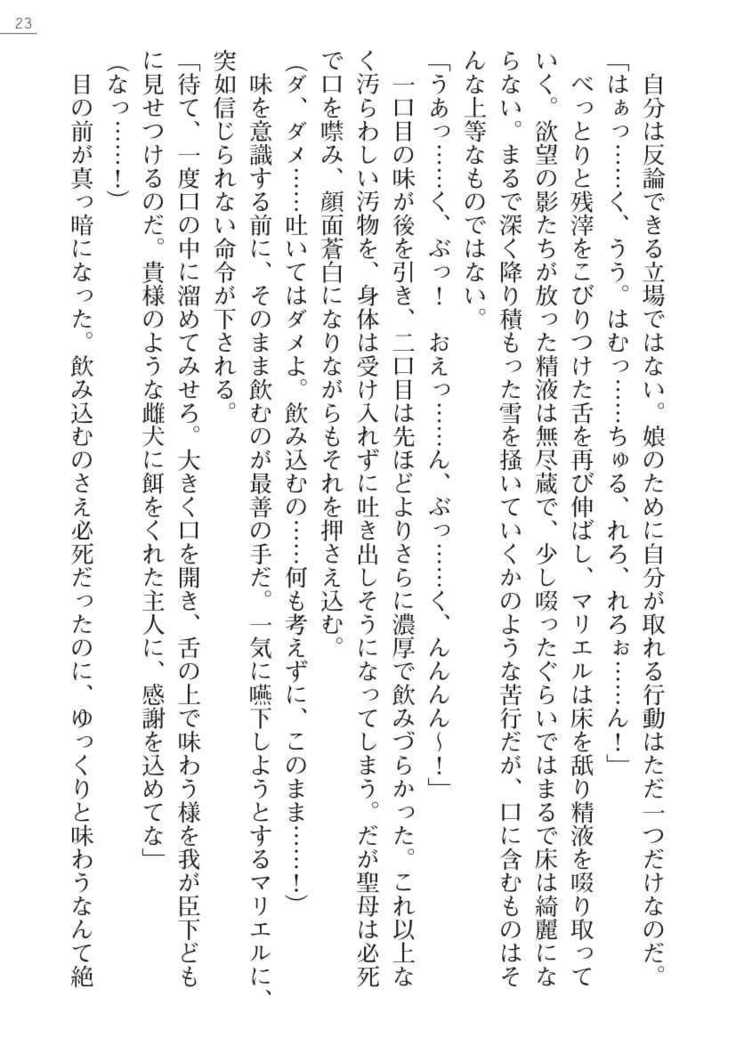 23
自分は反論できる立場ではない。娘のために自分が取れる行動はただ一つだけなのだ。
「はぁっ……く、うう。はむっ……ちゅる、れろ、れろぉ……ん！」
べっとりと残滓をこびりつけた舌を再び伸ばし、マリエルは床を舐り精液を啜り取って
いく。欲望の影たちが放った精液は無尽蔵で、少し啜ったぐらいではまるで床は綺麗にな
らない。まるで深く降り積もった雪を掻いていくかのような苦行だが、口に含むものはそ
んな上等なものではない。
「うあっ……く、ぶっ！　おえっ……ん、ぶっ……く、んんんん～！」
一口目の味が後を引き、二口目は先ほどよりさらに濃厚で飲みづらかった。これ以上な
く汚らわしい汚物を、身体は受け入れずに吐き出しそうになってしまう。だが聖母は必死
で口を噤み、顔面蒼白になりながらもそれを押さえ込む。
（ダ、ダメ……吐いてはダメよ。飲み込むの……何も考えずに、このまま……！）
味を意識する前に、そのまま飲むのが最善の手だ。一気に嚥下しようとするマリエルに、
突如信じられない命令が下される。
「待て、一度口の中に溜めてみせろ。大きく口を開き、舌の上で味わう様を我が臣下ども
に見せつけるのだ。貴様のような雌犬に餌をくれた主人に、感謝を込めてな」
（なっ……！）
目の前が真っ暗になった。飲み込むのさえ必死だったのに、ゆっくりと味わうなんて絶